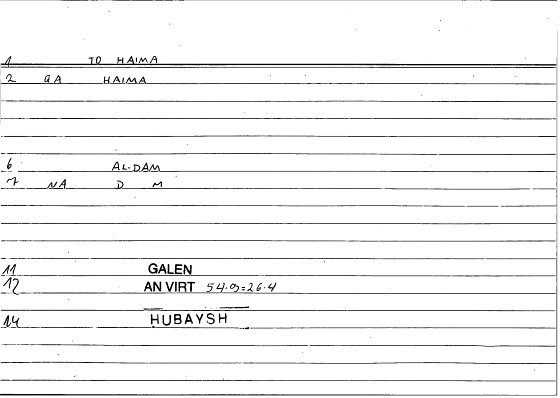 1 TO HAIMA
2 GA HAIMA
6 AL-DAM
7 NA D M
11 GALEN
12 AN VIRT 54.9=26.4
14 HUBAYSH